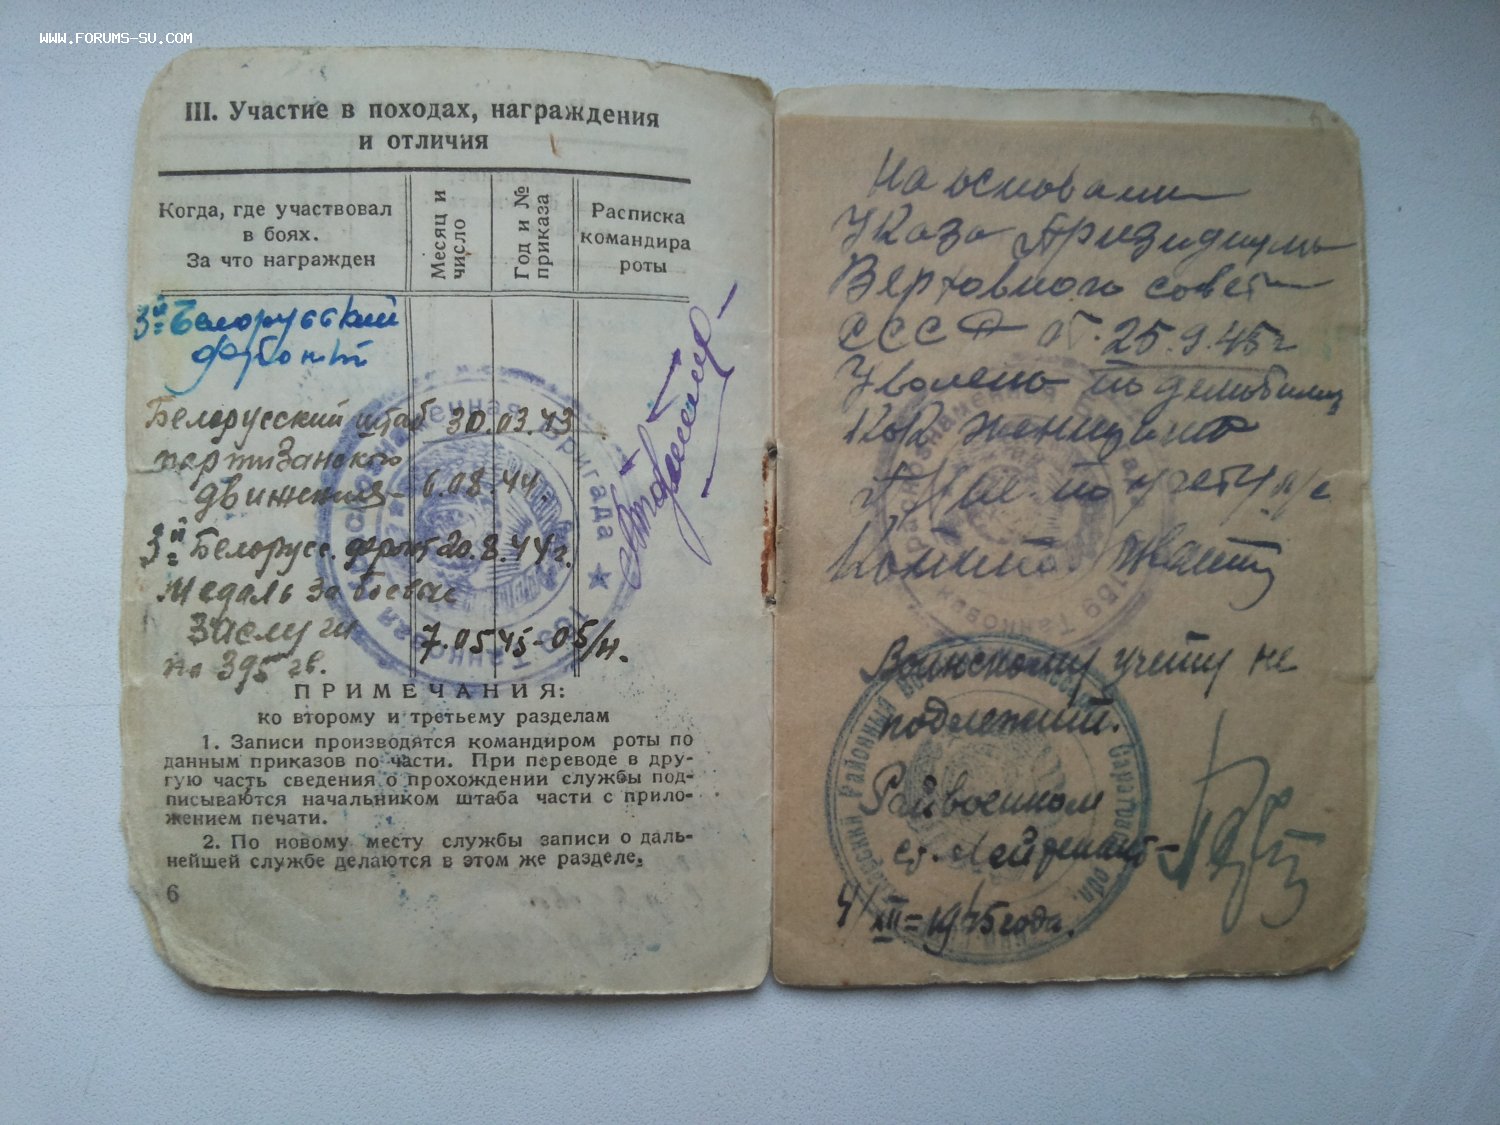 WWW.FORUMS-SU.COM
III. Участие в походах, награждения
и отличия
Когда, где участвовал
в боях.
За что награжден
Месяц и
число
Год и №
приказа
Расписка
командира
роты
3й Белорусский
фронт
Белорусский штаб 30.03.43
партизанского
движения - 6.08.44.
3й Белорусс. фронт 20.8.44г.
Медаль за боевые
заслуги 7.05 45- 05/н.
по 395 гв.
ПРИМЕЧАНИЯ:
ко второму и третьему разделам
1. Записи производятся командиром роты по
данным приказов по части. При переводе в дру-
гую часть сведения о прохождении службы под-
писываются начальником штаба части с прило-
жением печати.
2. По новому месту службы записи о даль-
нейшей службе делаются в этом же разделе.
6
На основании
Указа Призидиума
Верховного совета
СССР от 25.9.45г
Уволена по демобилиз
как женщина
по учету
Воинскому учету не
подлежит.
Райвоенком
ст. лейтенант-
4/XII=1945 года.
159 Танковая Краснознаменная Бригада
Районный Саратовской обл.